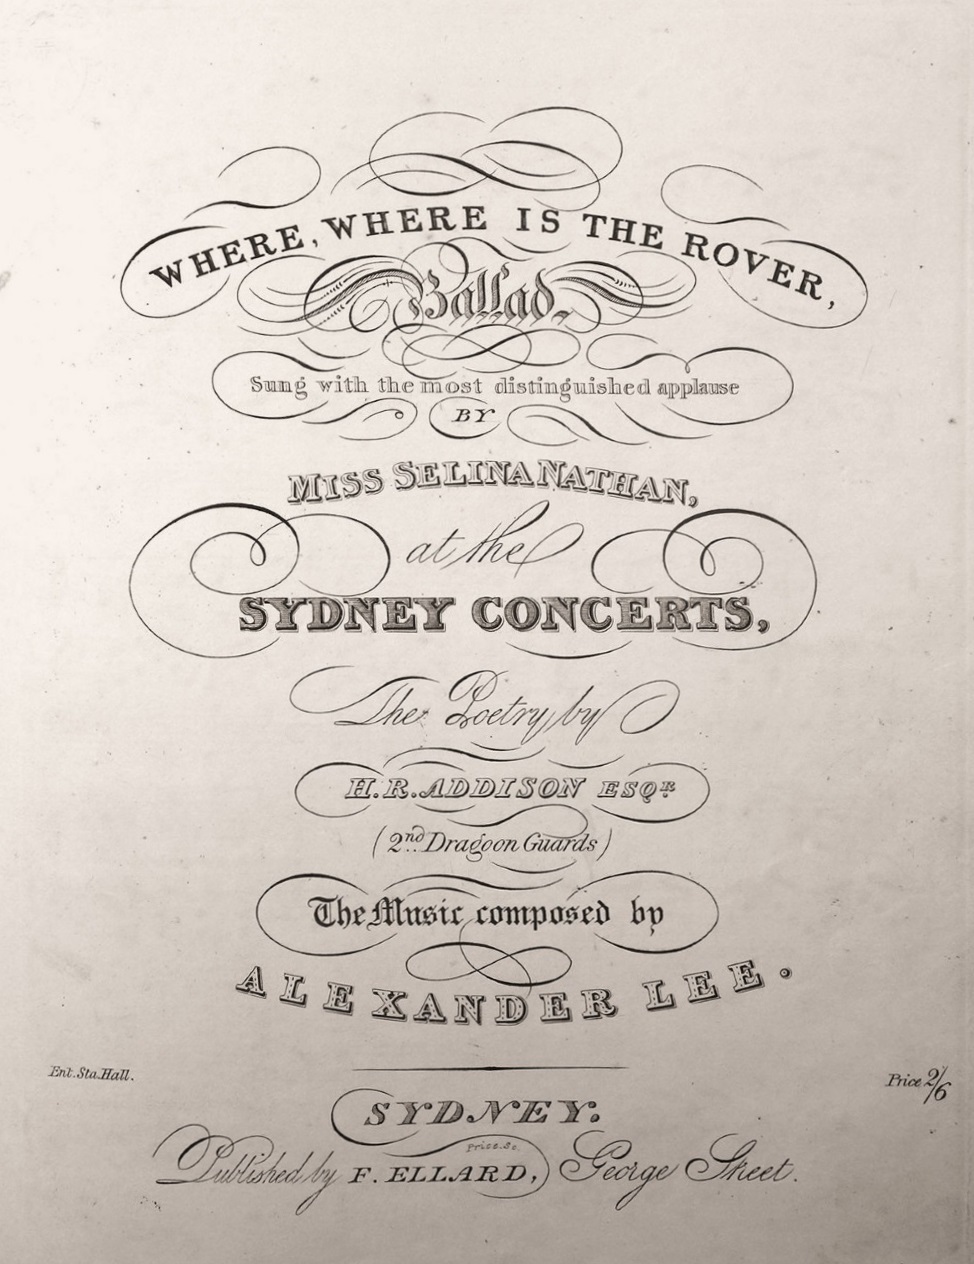 WHERE, WHERE IS THE ROVER,
Ballad.
Sung with the most distinguished applause
BY
MISS SELINA NATHAN,
at the
SYDNEY CONCERTS,
The Poetry by
H. R. ADDISON ESQR
(2nd Dragoon Guards)
The Music composed by
ALEXANDER LEE.
Ent. Sta. Hall.
Price 2/6
SYDNEY.
Published by F. ELLARD, George Street.